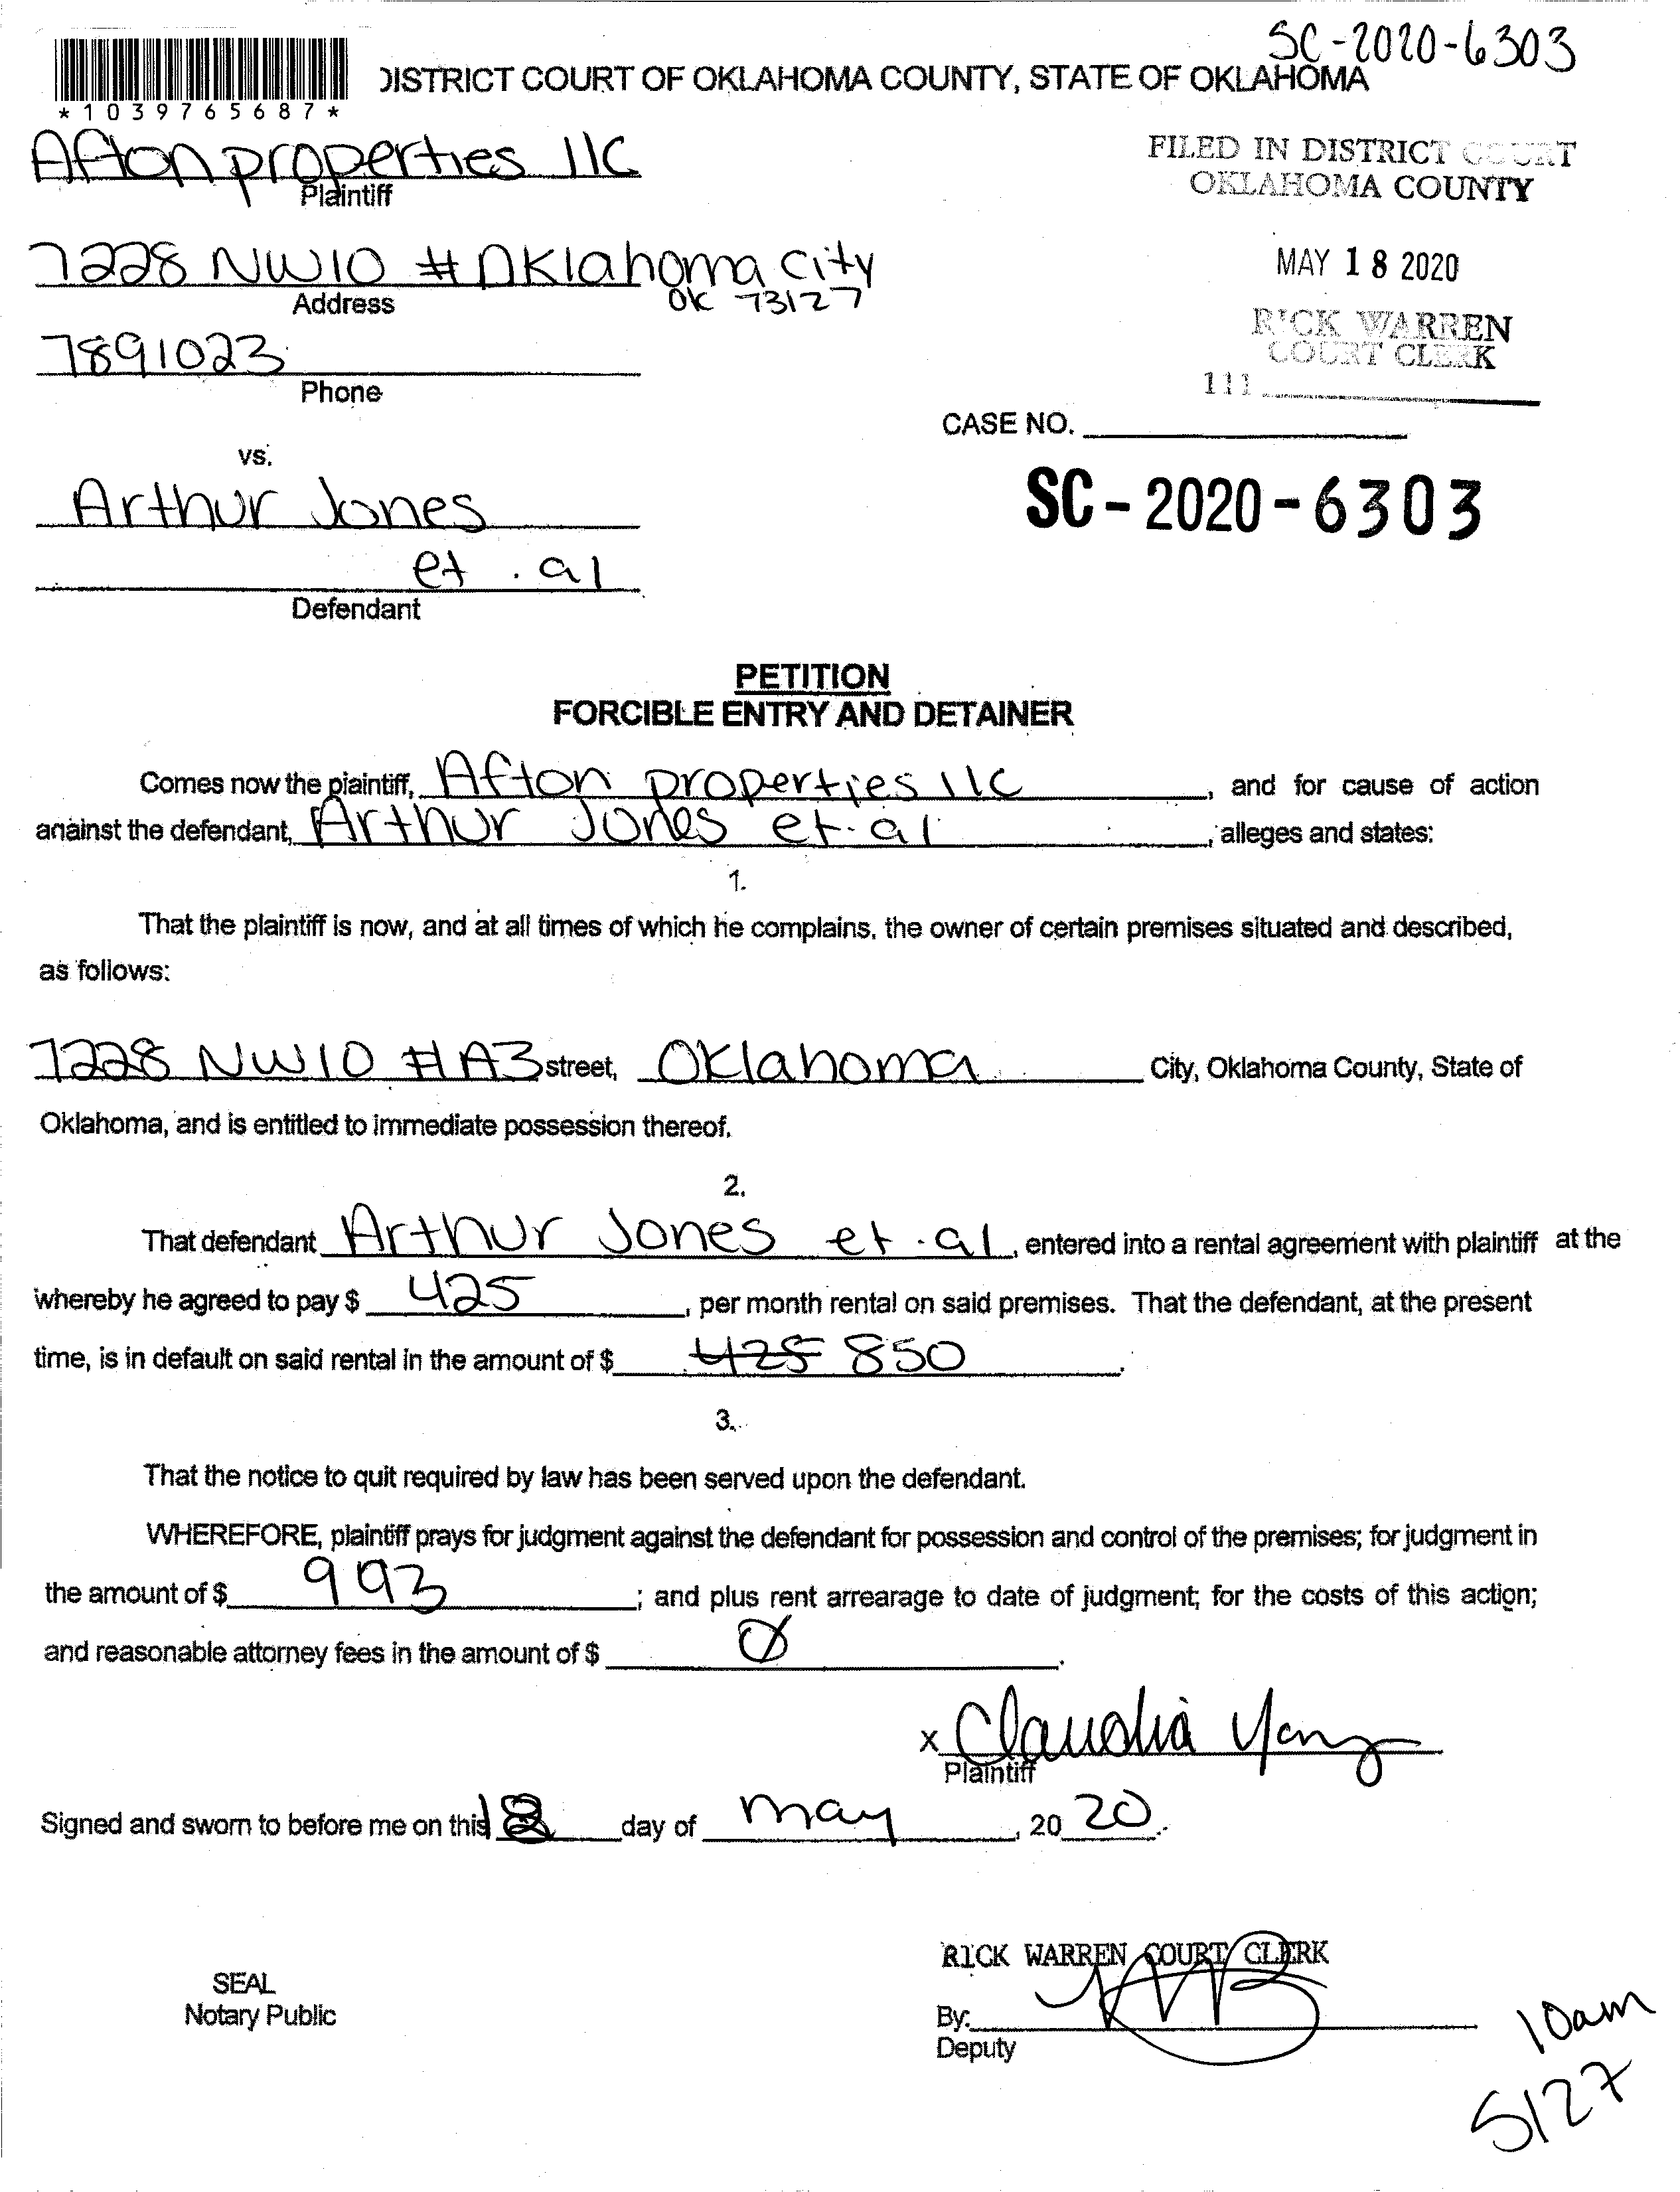 SC-2020-6303
DISTRICT COURT OF OKLAHOMA COUNTY, STATE OF OKLAHOMA
*1039765687*
Afton properties llc
Plaintiff
FILED IN DISTRICT COURT
OKLAHOMA COUNTY
7228 NW10 # Oklahoma City
Address
OK 73127
MAY 18 2020
7891023
Phone
RICK WARREN
COURT CLERK
111
CASE NO.
vs.
Arthur Jones
SC-2020-6303
et . al
Defendant
PETITION
FORCIBLE ENTRY AND DETAINER
Comes now the plaintiff, Afton properties llc, and for cause of action
against the defendant, Arthur Jones et. al, alleges and states:
1.
That the plaintiff is now, and at all times of which he complains, the owner of certain premises situated and described,
as follows:
7228 NW10 #A3 street, Oklahoma City, Oklahoma County, State of
Oklahoma, and is entitled to immediate possession thereof.
2.
That defendant Arthur Jones et. al, entered into a rental agreement with plaintiff at the
whereby he agreed to pay $ 425, per month rental on said premises. That the defendant, at the present
time, is in default on said rental in the amount of $ 425 850.
3.
That the notice to quit required by law has been served upon the defendant.
WHEREFORE, plaintiff prays for judgment against the defendant for possession and control of the premises; for judgment in
the amount of $ 993; and plus rent arrearage to date of judgment; for the costs of this action;
and reasonable attorney fees in the amount of $ 0.
x Claudia Yanz
Plaintiff
Signed and sworn to before me on this 18 day of may, 20 20.
RICK WARREN COURT CLERK
SEAL
Notary Public
By:
Deputy
10am
5/27